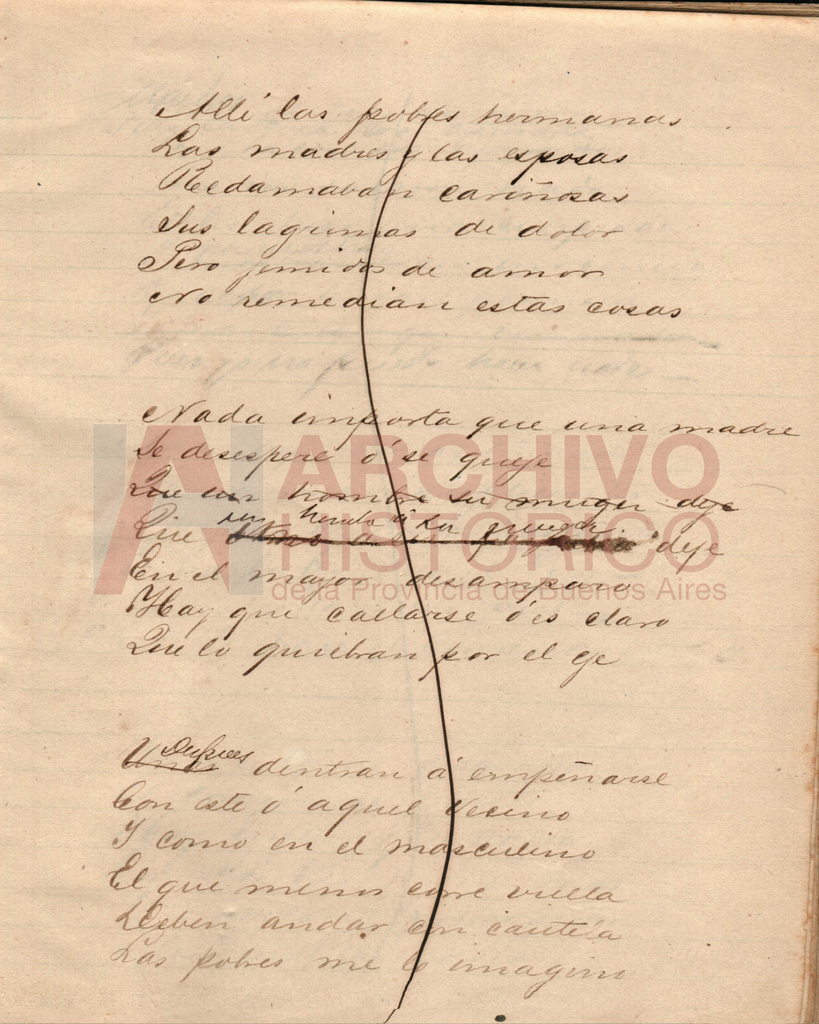 Allí las pobres hermanas
Las madres y las esposas
Redamaban cariñosas
Sus lagrimas de dolor
Pero jemidos de amor
No remedian estas cosas
Nada importa que una madre
Se desespere ó se queje
Que un hombre su muger deje
un hombre á su muger
Que deje
En el mayor desamparo
Hay que callarse ó es claro
Que lo quiebran por el eje
Despues
Unas dentran á empeñarse
Con este ó aquel vecino
Y como en el masculino
El que menos corre vuela
Deben andar con cautela
Las pobres me lo imagino
ARCHIVO
HISTÓRICO
de la Provincia de Buenos Aires